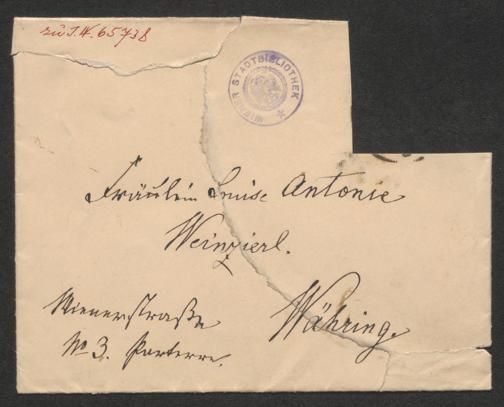 zu I.N. 65738
WIENER STADTBIBLIOTHEK
Fräulein Luise Antonie
Weinzierl.
Währing.
Wienerstraße
No 3. Parterre.